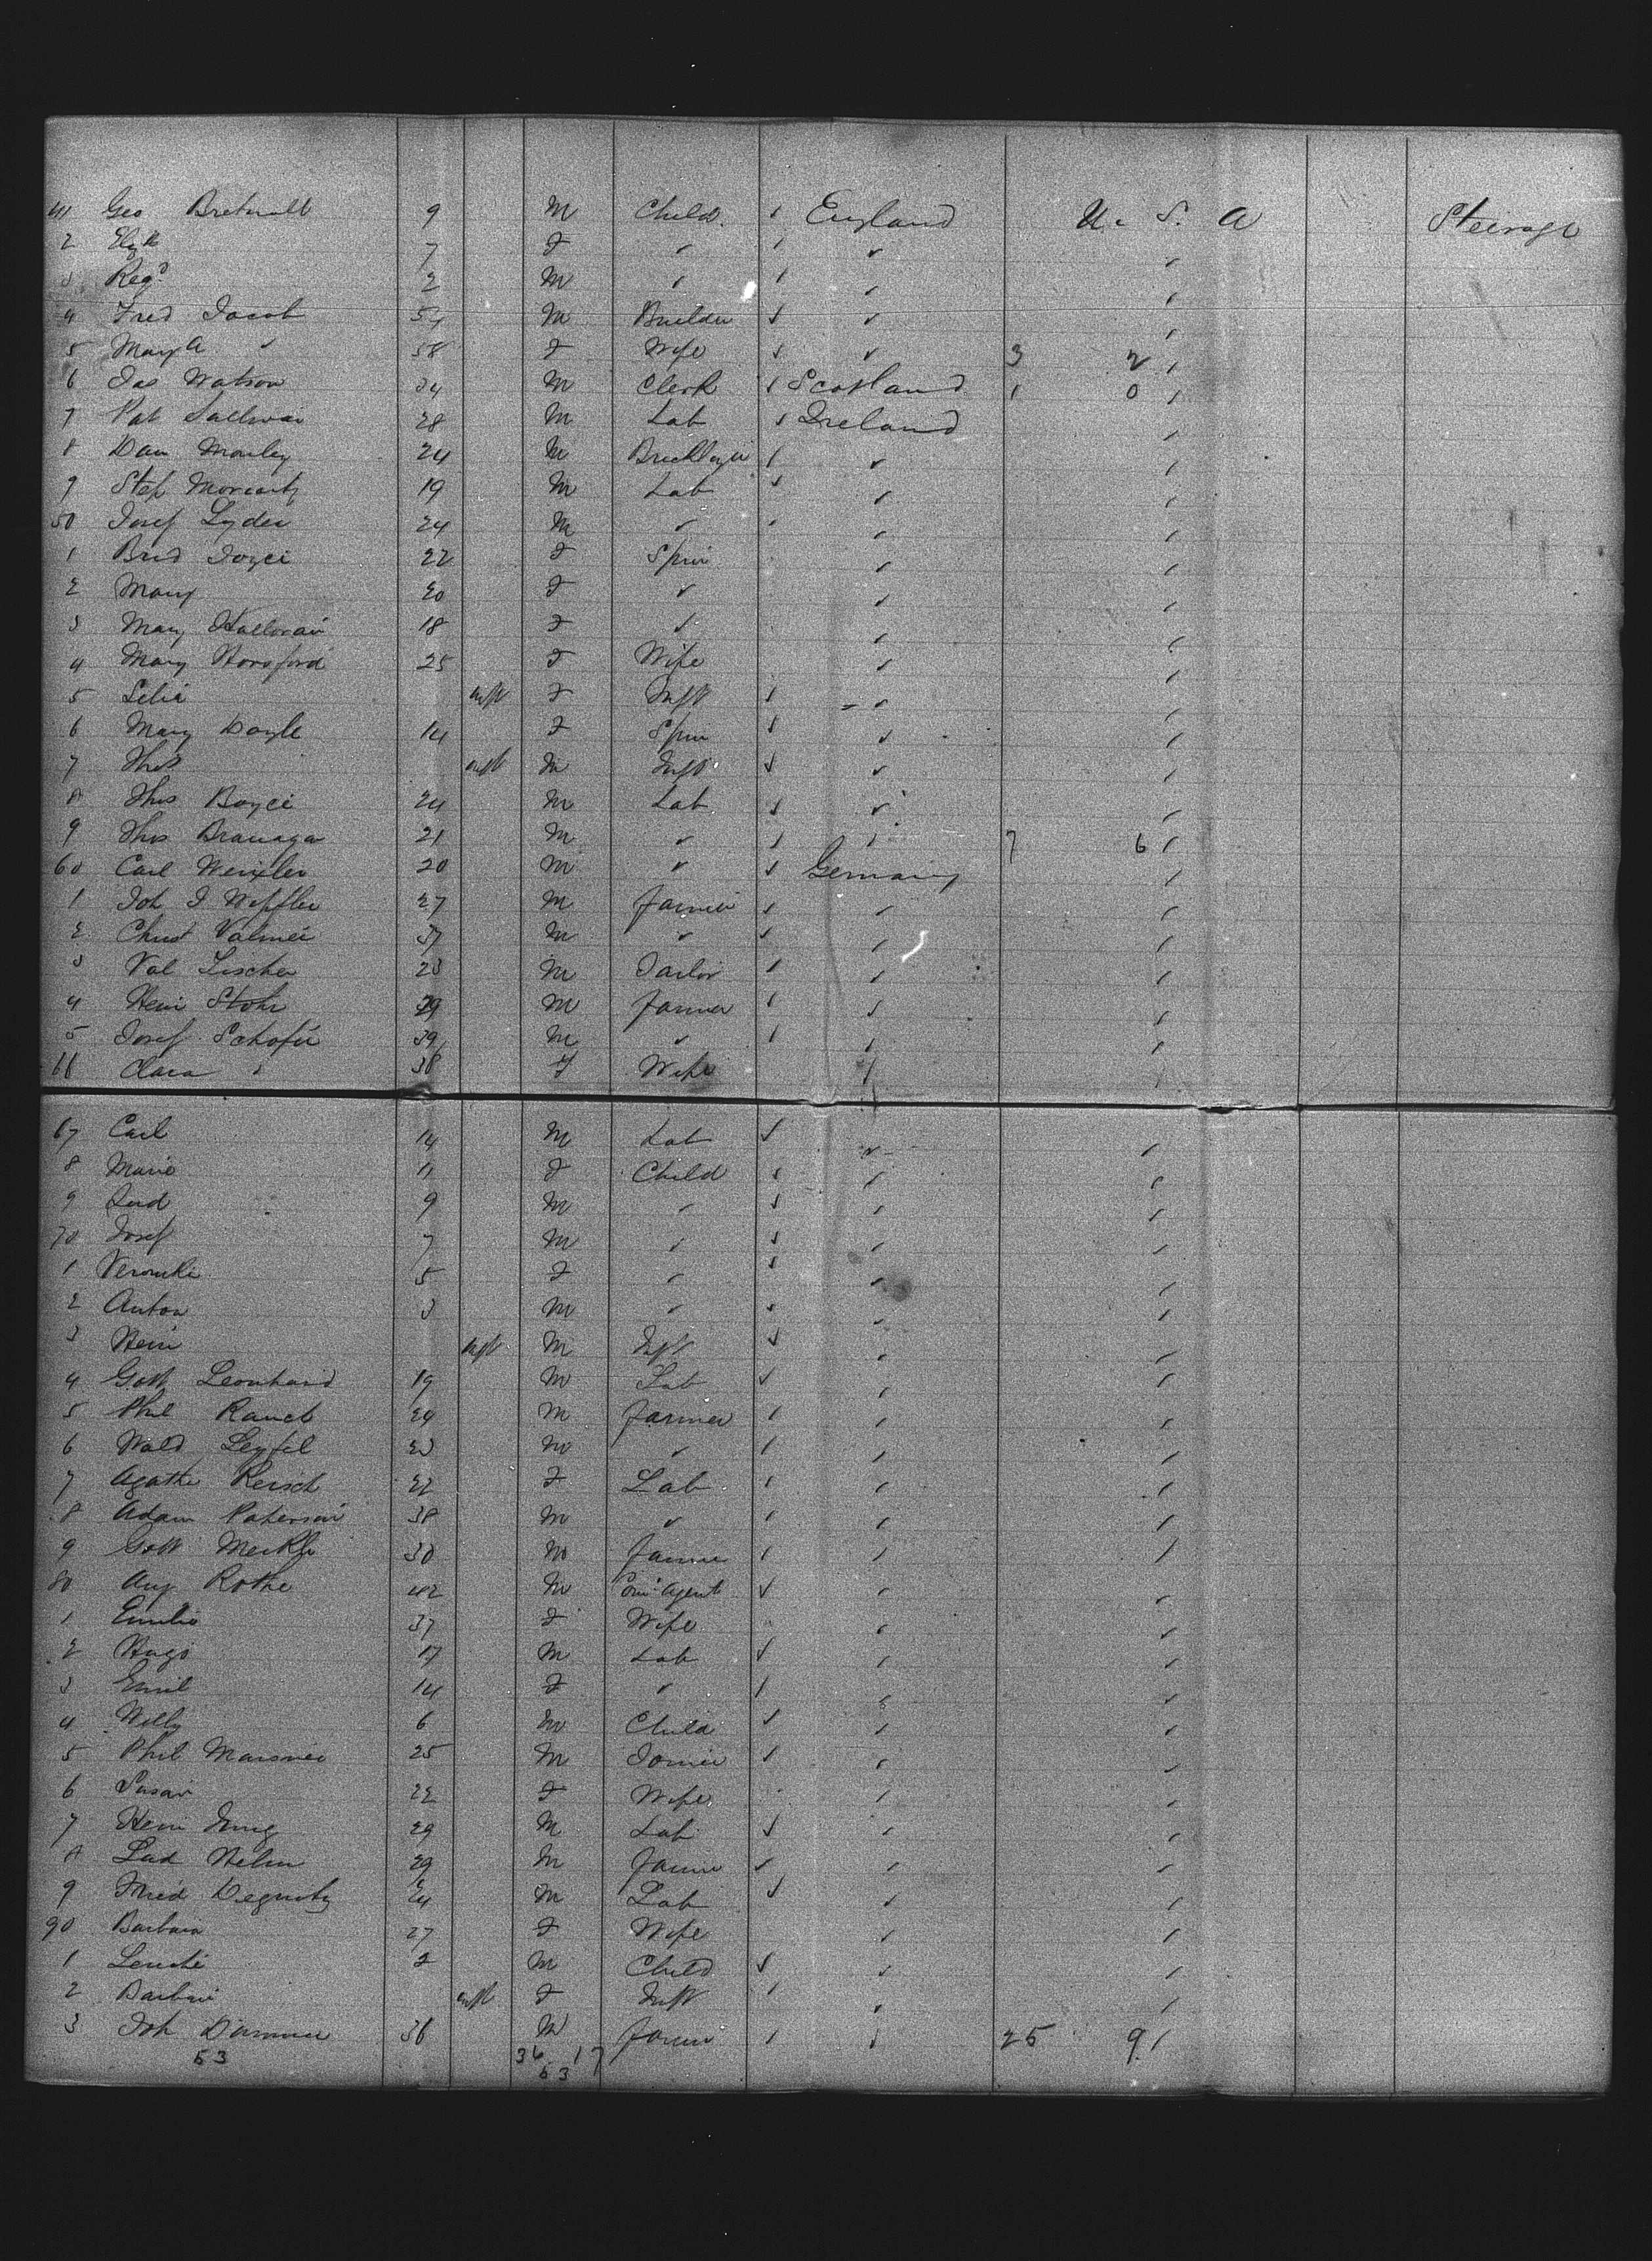 41 Geo Bretnall 9 M Child England U. S. A Steerage
2 Elizth 7 F " " "
3 Regd 2 M " " "
4 Fred Jacob 54 M Builder " "
5 Mary A " 58 F Wife " 3 2 "
6 Jas Watson 24 M Clerk Scotland 1 0 "
7 Pat 28 M Lab Ireland "
8 Dan Manley 24 M Bricklayer " "
9 Step Moriarty 19 M Lab " "
50 Josef Lyden 24 M " " "
1 Brid Joyce 22 F Spin " "
2 Mary 20 F " " "
3 Mary Halloran 18 F " " "
4 Mary Horsford 25 F Wife " "
5 Selia inft F Inft " "
6 Mary Doyle 14 F Spin " "
7 Thos inft M Inft " "
8 Thos Boyce 24 M Lab " "
9 Thos Branaga 21 M " " 7 6 "
60 Carl 20 M " Germany "
1 Joh J 27 M Farmer " "
2 Christ 37 M " " "
3 Val Lischer 23 M Tailor " "
4 Hein Stohr 29 M Farmer " "
5 Josef Schafer 39 M " " "
66 Clara " 38 F Wife " "
67 Carl 14 M Lab " "
8 Marie 11 F Child " "
9 Lud 9 M " " "
70 Josef 7 M " " "
1 Veronika 5 F " " "
2 Anton 3 M " " "
3 Hein inft M Inft " "
4 Gott Leonhard 19 M Lab " "
5 Phil Rauch 24 M Farmer " "
6 Wald 23 M " " "
7 Agathe Kersch 22 F Lab " "
8 Adam Paterson 38 M " " "
9 Gott Merkle 30 M Farmer " "
80 Aug Rothe 42 M Com. Agent " "
1 Emilie 37 F Wife " "
2 Hugo 17 M Lab " "
3 Emil 14 F " " "
4 Willy 6 M Child " "
5 Phil 25 M Joiner " "
6 Susan 22 F Wife " "
7 Hein Jung 29 M Lab " "
8 Lud Helm 29 M Farmer " "
9 Fried 24 M Lab " "
90 Barbara 27 F Wife " "
1 2 M Child " "
2 Barbara inft F Inft " "
3 Joh 36 M Farmer " 25 9 "
53 36 17
53